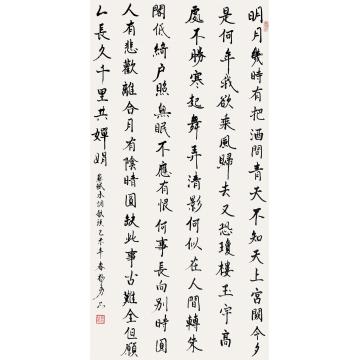 明月幾時有把酒問青天不知天上宮闕今夕
是何年我欲乘風歸去又恐瓊樓玉宇高
處不勝寒起舞弄清影何似在人間轉朱
閣低綺户照無眠不應有恨何事長向別時圓
人有悲歡離合月有陰晴圓缺此事古難全但願
人長久千里共嬋娟
蘇軾水調歌頭乙未年春